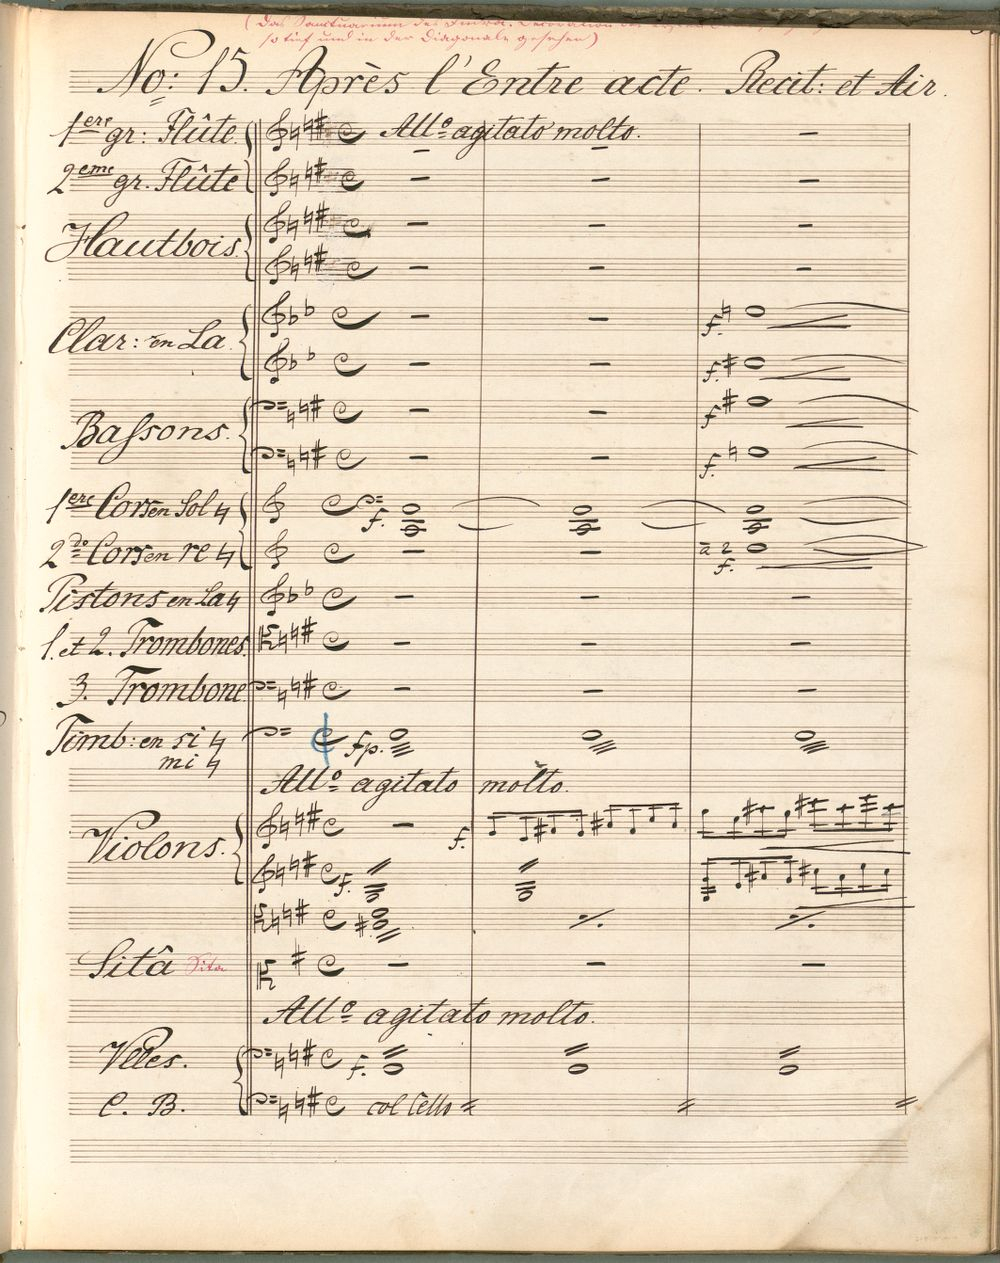 (Das Sanctuarium des Indra. Decoration
so tief und in der Diagonale gesehen)
No: 15. Après l'Entre acte. Recit: et Air.
1ere gr: Flûte. All° agitato molto.
2eme gr. Flûte
Hautbois.
Clar: en La.
f.
f.
Bassons.
f.
f.
1ere Cors en Sol ♮ f.
2do Cors en re ♮ à 2
f.
Pistons en La ♮
1. et 2. Trombones.
3. Trombone.
Timb: en si ♮ fp.
mi ♮
All° agitato molto.
Violons. f.
f.
Sitâ Sita
All° agitato molto.
Vlles. f.
C. B. col Cello